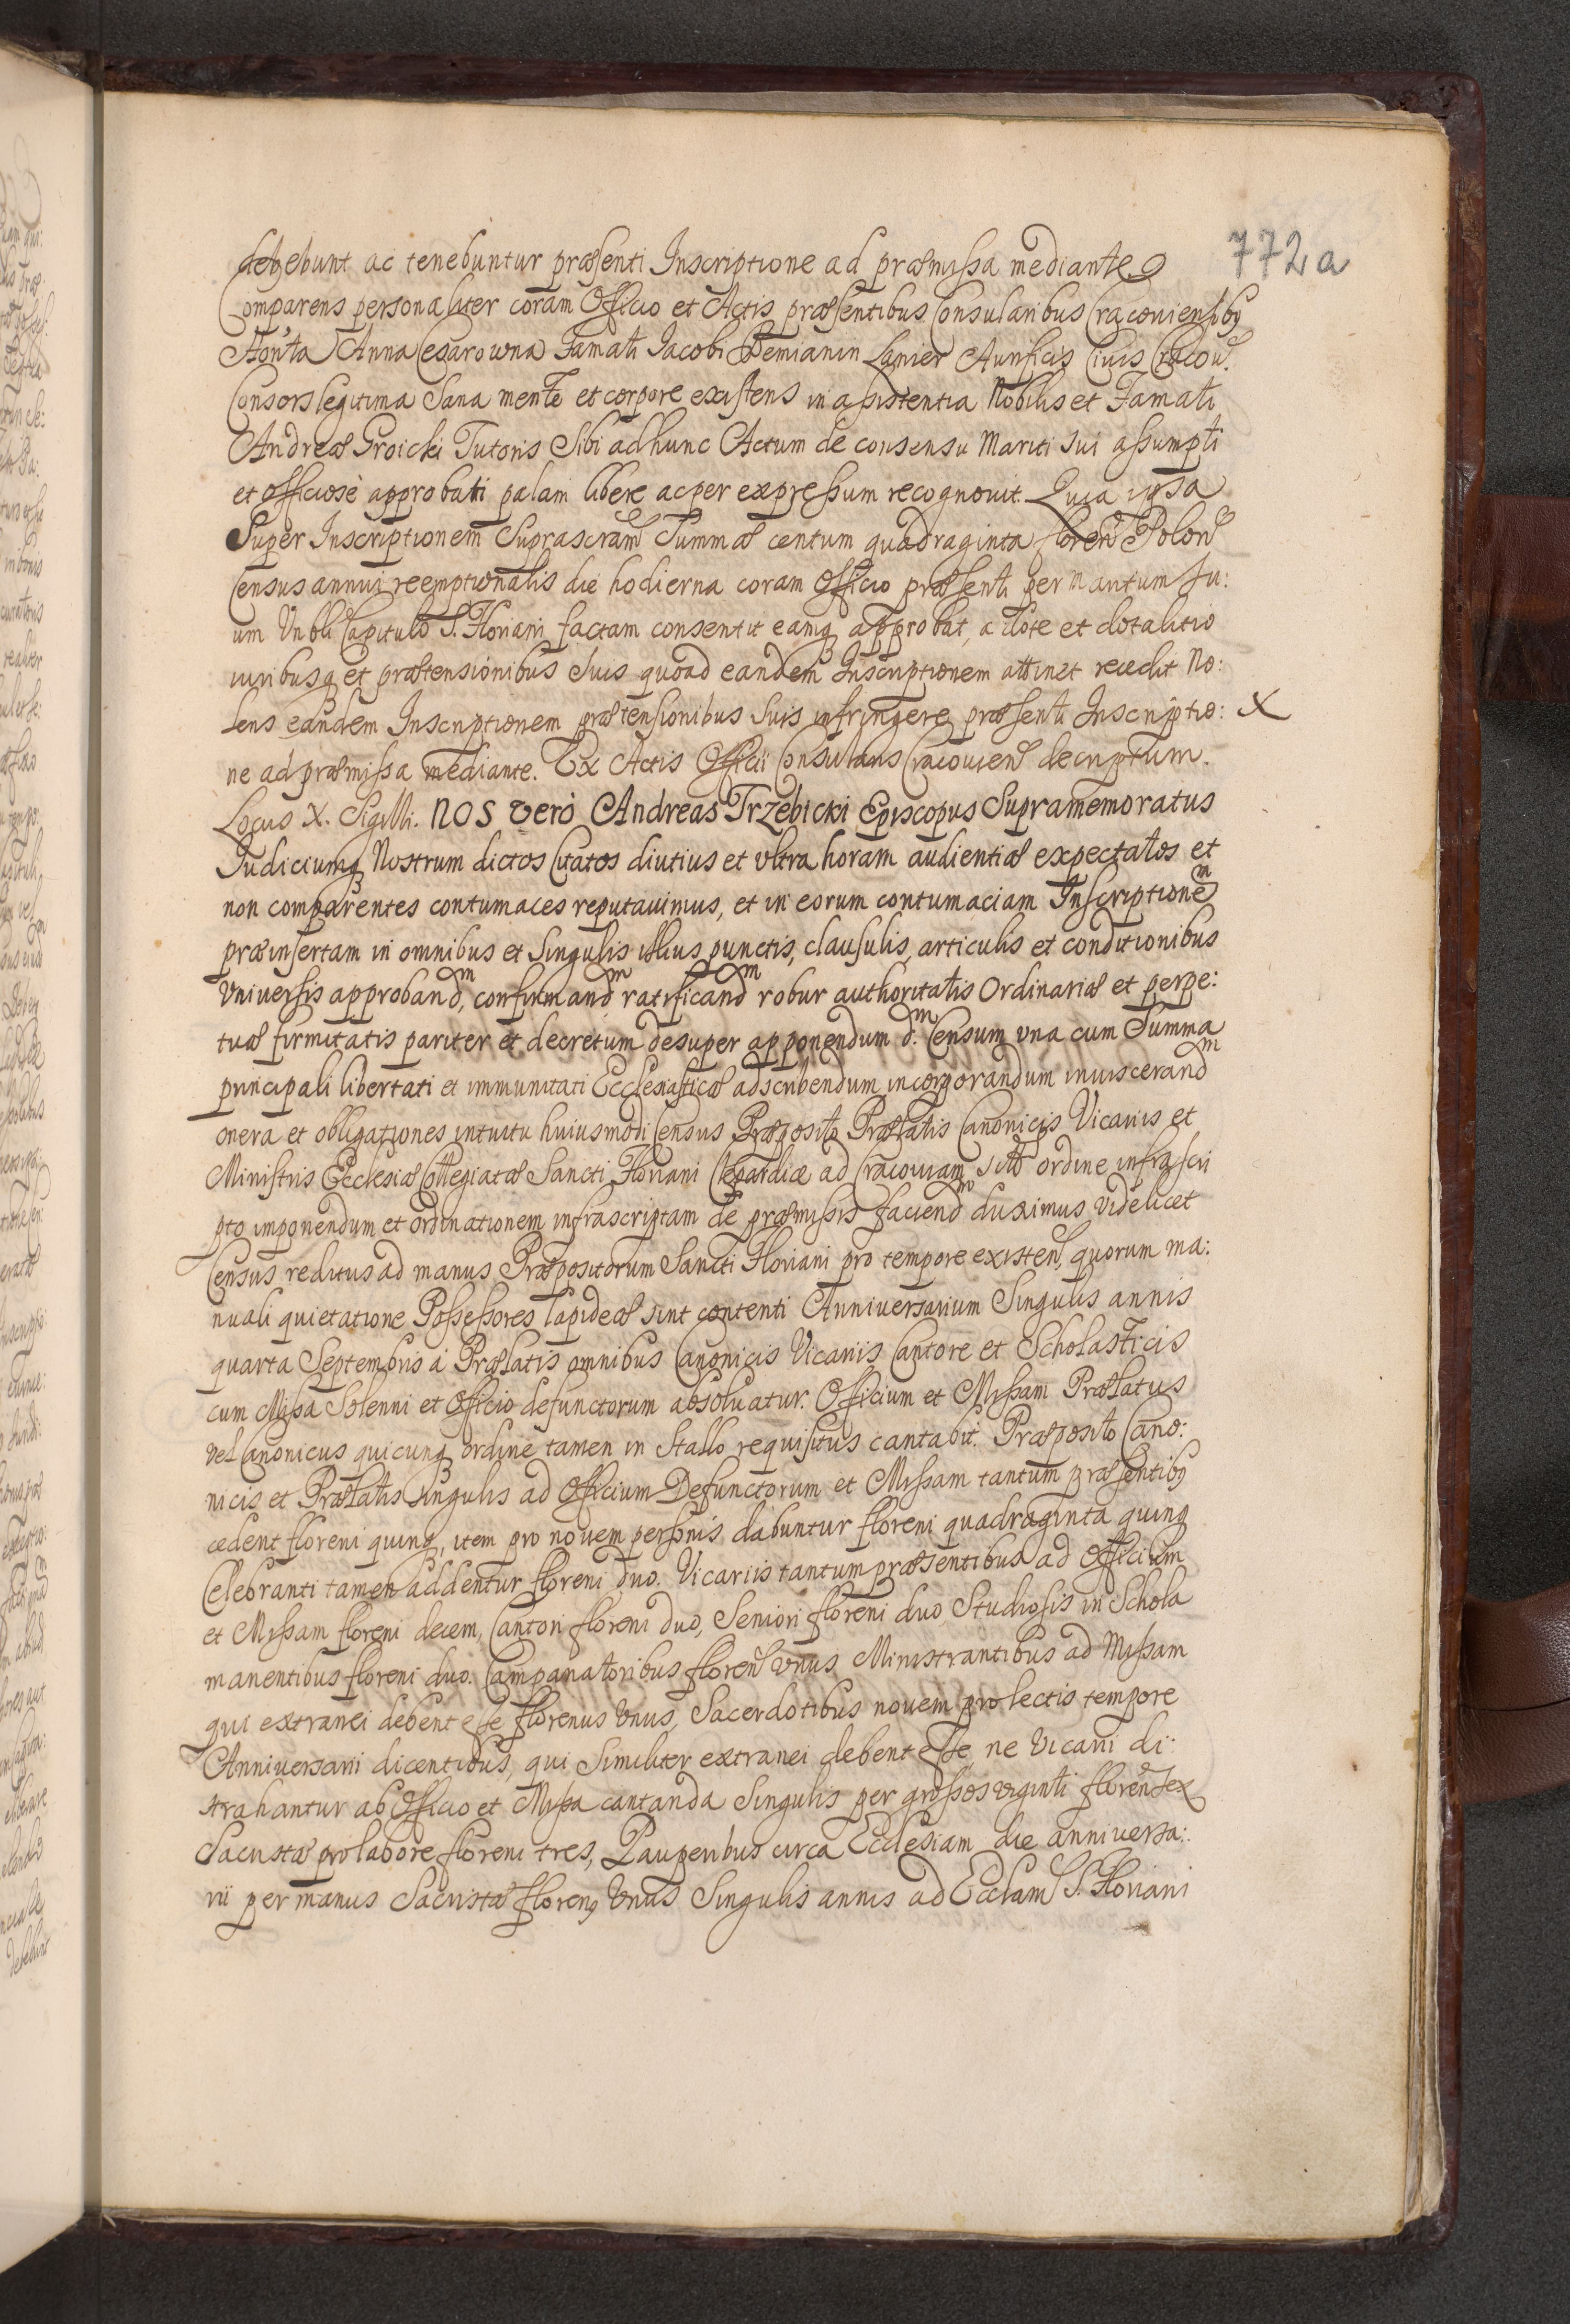 772a
debebunt ac tenebuntur præsenti Inscriptione ad præmissa mediante
Comparens personaliter coram Officio et Actis præsentibus Consularibus Cracouiensibꝫ
Hon̄ta Anna Cesarowna Famati Jacobi Demianin Lanier Aurificis Ciuis Cracou̅.
Consors legitima Sana mente et corpore existens in assistentia Nobilis et Famati
Andreæ Groicki Tutoris Sibi ad hunc Actum de consensu Mariti sui assumpti
et officiosè approbati palam liberè ac per expressum recognouit. Quia ipsa
Super Inscriptionem Suprascram̅ Summæ centum quadraginta floren̅ Polon̅
Census annui reemptionalis die hodierna coram Officio præsenti per maritum su:
um Vnbli Capitulo S. Floriani factam consentit eamqꝫ approbat, a dote et dotalitio
iuribusqꝫ et prætensionibus Suis quoad eandem Inscriptionem attinet recedit No:
lens eandem Inscriptionem prætensionibus Suis infringere præsenti Inscriptio: X
ne ad præmissa mediante. Ex Actis Officii Consularis Cracouien̅ descriptum.
Locus X. Sigilli. NOS verò Andreas Trzebicki Episcopus Supramemoratus
Judiciumqꝫ Nostrum dictos Citatos diutius et vltra horam audientiæ expectatos et
non comparentes contumaces reputauimus, et in eorum contumaciam Inscriptioneᵐ
præinsertam in omnibus et Singulis illius punctis, clausulis, articulis et conditionibus
Vniuersis approbandᵐ, confirmandᵐ ratificandᵐ robur authoritatis Ordinariæ et perpe:
tuæ firmitatis pariter et decretum desuper apponendum d.ᵐ Censum vna cum Summa
principali libertati et immunitati Ecclesiasticæ adscribendum incorporandum inuiscerandᵐ
onera et obligationes intuitu huiusmodi Census Præposito Prælatis Canonicis Vicariis et
Ministris Ecclesiæ Collegiatæ Sancti Floriani Clepardiæ ad Cracouiam sitæ ordine infrascri
pto imponendum et ordinationem infrascriptam de præmissis faciendᵐ duximus videlicet
Census reditus ad manus Præpositorum Sancti Floriani pro tempore existen̅, quorum ma:
nuali quietatione Possessores lapideæ sint contenti Anniversarium Singulis annis
quarta Septembris à Prælatis omnibus Canonicis Vicariis Cantore et Scholasticis
cum Missa Solenni et Officio defunctorum absoluatur. Officium et Missam Prælatus
vel Canonicus quicunqꝫ ordine tamen in Stallo requisitus cantabit. Præposito Cano:
nicis et Prælatis singulis ad Officium Defunctorum et Missam tantum præsentibꝫ
cedent floreni quinqꝫ, item pro nouem personis dabuntur floreni quadraginta quinqꝫ
Celebranti tamen addentur floreni duo. Vicariis tantum præsentibus ad Officium
et Missam floreni decem, Cantori floreni duo, Seniori floreni duo, Studiosis in Schola
manentibus floreni duo. Campanatoribus floren̅ Vnus Ministrantibus ad Missam
qui extranei debent esse florenus Vnus, Sacerdotibus nouem pro lectis tempore
Anniversarii dicentibus, qui Similiter extranei debent esse, ne Vicarii di:
strahantur ab Officio et Missa cantanda Singulis per grossos viginti floren̅ Sex
Sacristæ pro labore floreni tres, Pauperibus circa Ecclesiam die anniuersa:
rii per manus Sacristæ florenꝫ Vnus Singulis annis ad Eccl̄am S. Floriani